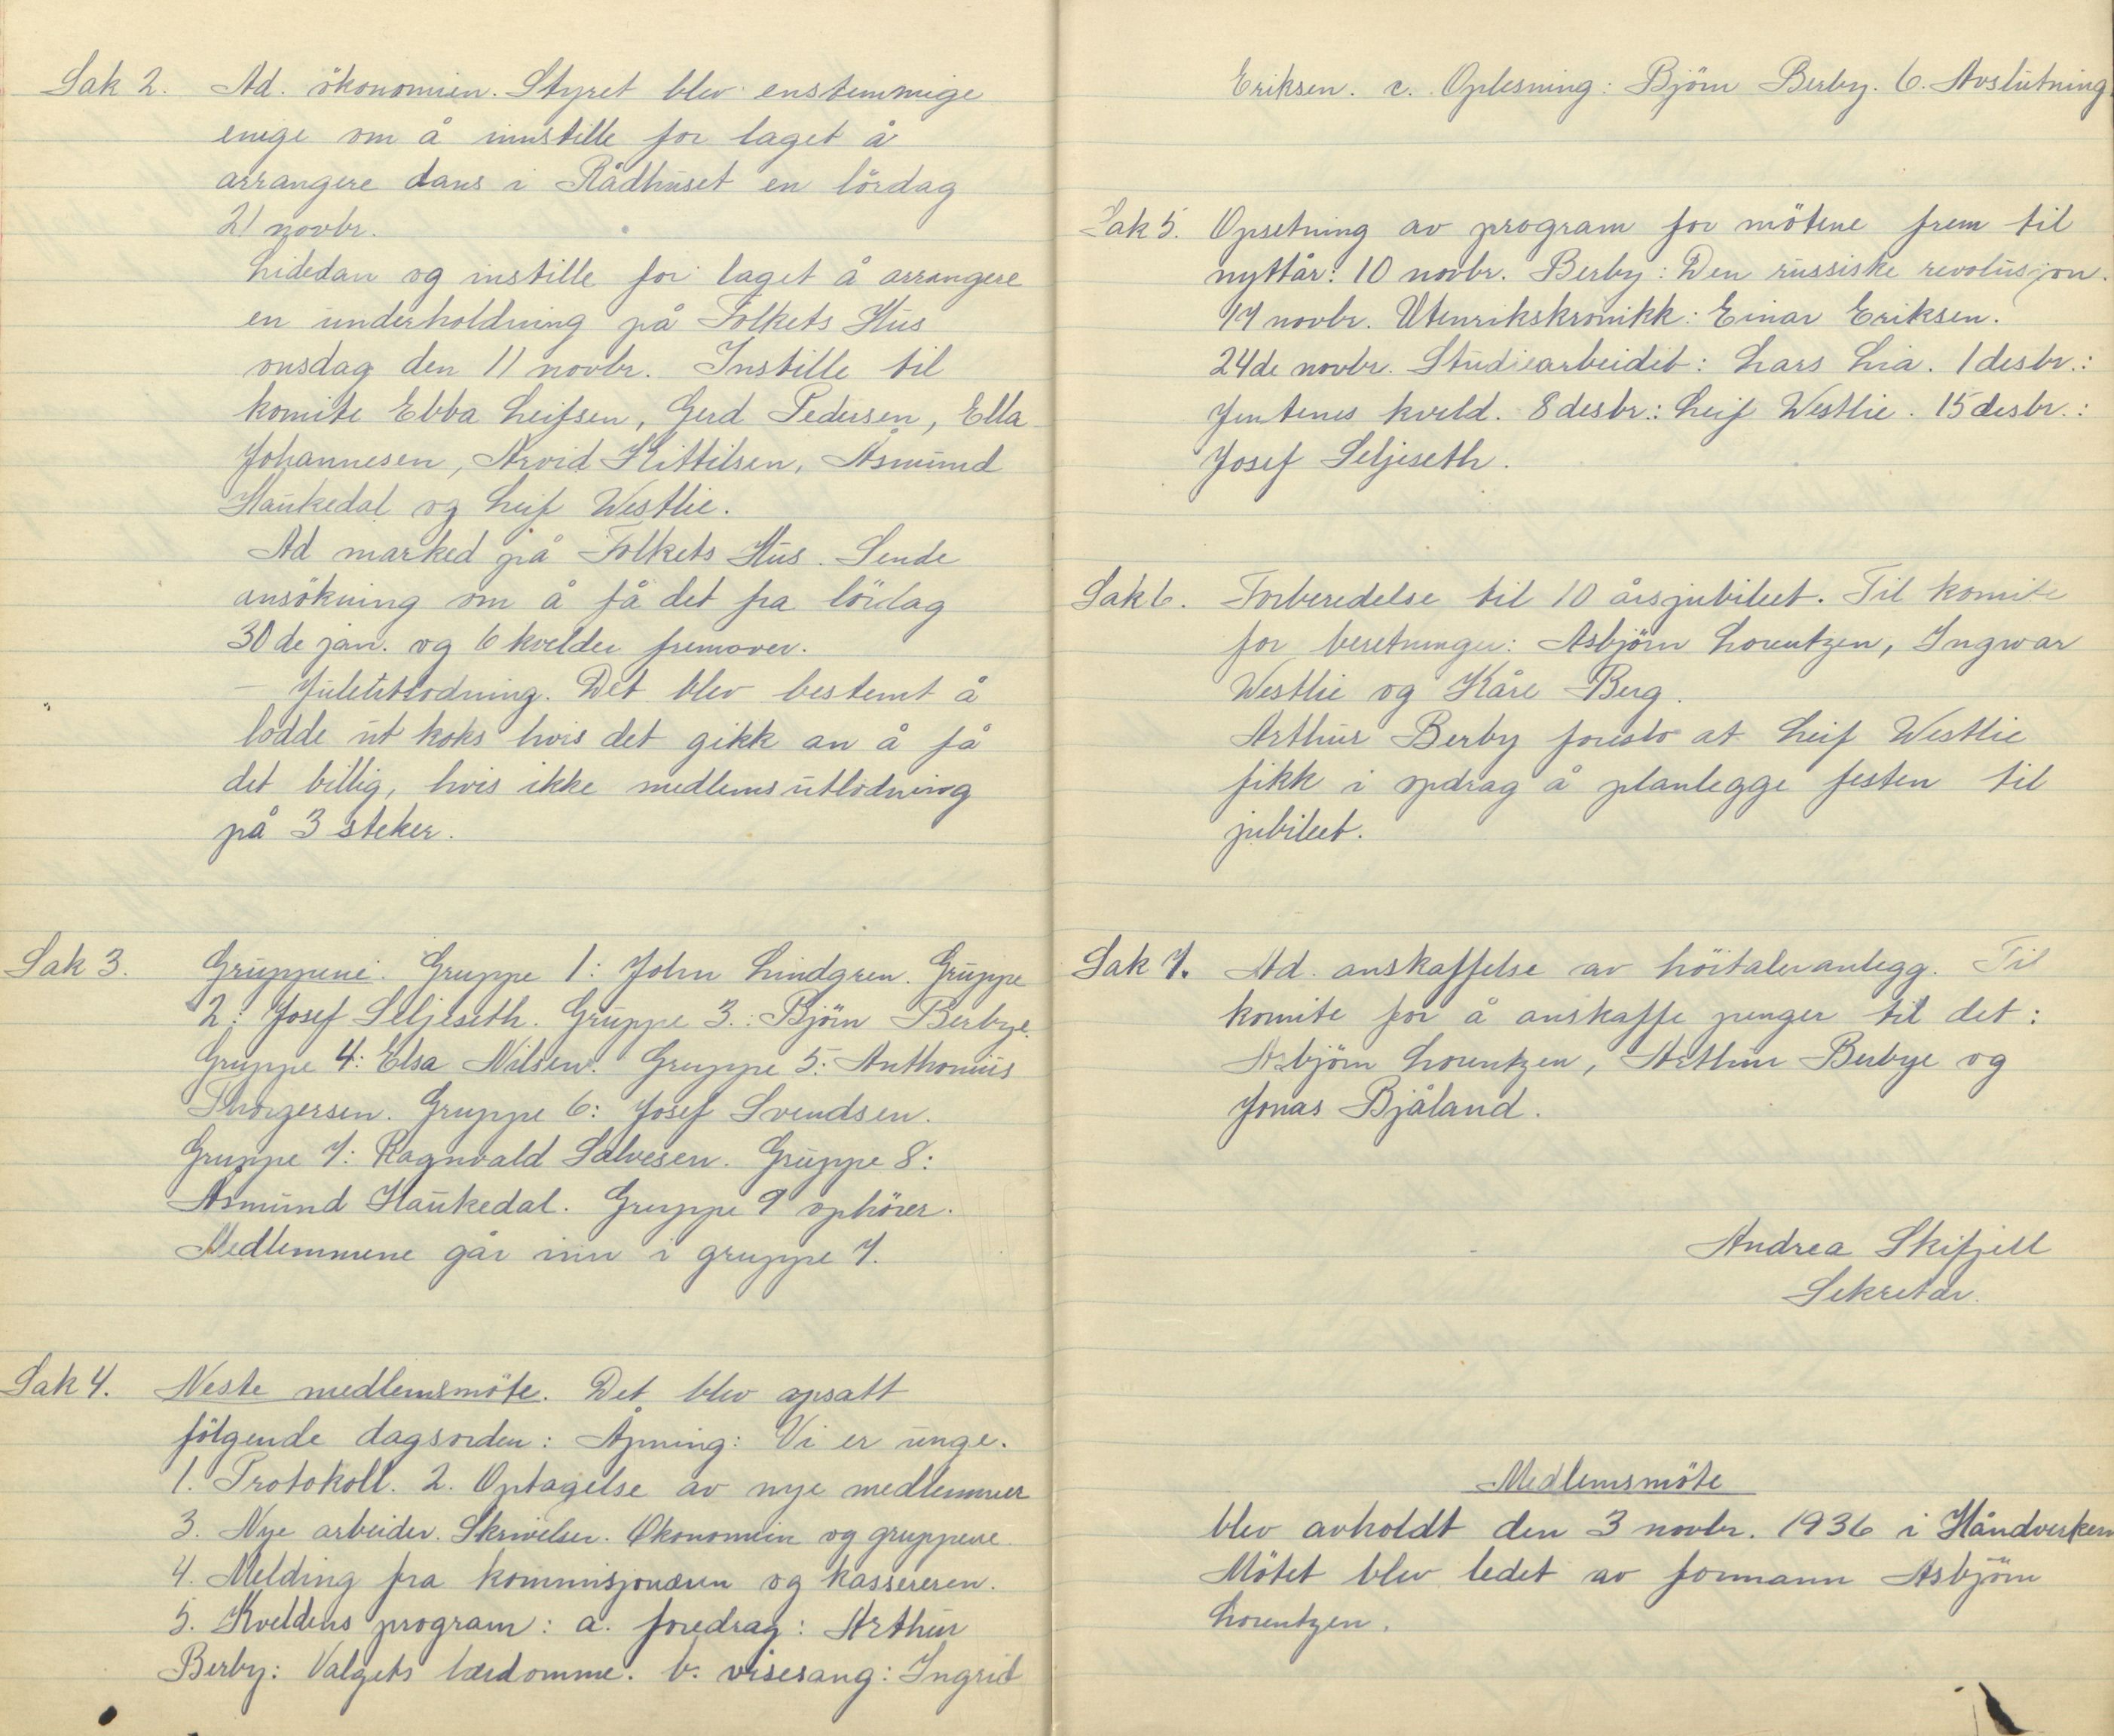 Sak 2. Ad. ökonomien. Styret blev enstemmige
enige om å innstille for laget å
arrangere dans i Rådhuset en lördag
21 novbr.
Lidedan og instille for laget å arrangere
en underholdning på Folkets Hus
onsdag den 11 novbr. Instille til
komite Ebba Leifsen, Gerd Pedersen, Ella
Johannesen, Arvid Kittilsen, Åsmund
Haukedal og Leif Westlie.
Ad marked på Folkets Hus. Sende
ansökning om å få det fra lördag
30de jan. og 6 kvelder fremover.
- Juleutlodning. Det blev bestemt å
lodde ut koks hvis det gikk an å få
det billig, hvis ikke medlemsutlodning
på 3 steker.
Sak 3. Gruppene. Gruppe 1: John Lindgren. Gruppe
2: Josef Seljeseth. Gruppe 3.: Björn Berbye.
Gruppe 4: Elsa Nilsen. Gruppe 5: Anthonius
Thorgersen. Gruppe 6: Josef Svendsen.
Gruppe 7: Ragnvald Salvesen. Gruppe 8:
Åsmund Haukedal. Gruppe 9 ophörer.
Medlemmene går inn i gruppe 7.
Sak 4. Neste medlemsmöte. Det blev opsatt
fölgende dagsorden: Åpning: Vi er unge.
1. Protokoll. 2. Optagelse av nye medlemmer
3. Nye arbeider. Skrivelser. Økonomien og gruppene.
4. Melding fra kommisjonæren og kassereren.
5. Kveldens program: a. foredrag: Arthur
Berby: Valgets lærdomme. b. visesang: Ingrid
Eriksen. c. Oplesning: Björn Berby. 6. Avslutning.
Sak 5. Opsetning av program for mötene frem til
nyttår: 10 novbr. Berby: Den russiske revolusjon.
17 novbr. Utenrikskronikk: Einar Eriksen.
24de novbr. Studiearbeidet: Lars Lia. 1 desbr.:
Jentenes kveld. 8 desbr.: Leif Westlie. 15 desbr.:
Josef Seljeseth.
Sak 6. Forberedelse til 10 årsjubileet. Til komite
for beretninger: Asbjörn Lorentzen, Ingwar
Westlie og Kåre Berg.
Arthur Berby foreslo at Leif Westlie
fikk i opdrag å planlegge festen til
jubileet.
Sak 7. Ad. anskaffelse av höitaleranlegg. Til
komite for å anskaffe penger til det:
Asbjörn Lorentzen, Arthur Berbye og
Jonas Bjåland.
Andrea Skifjell
Sekretær.
Medlemsmöte
blev avholdt den 3 novbr. 1936 i Håndverkern
Mötet blev ledet av formann Asbjörn
Lorentzen.